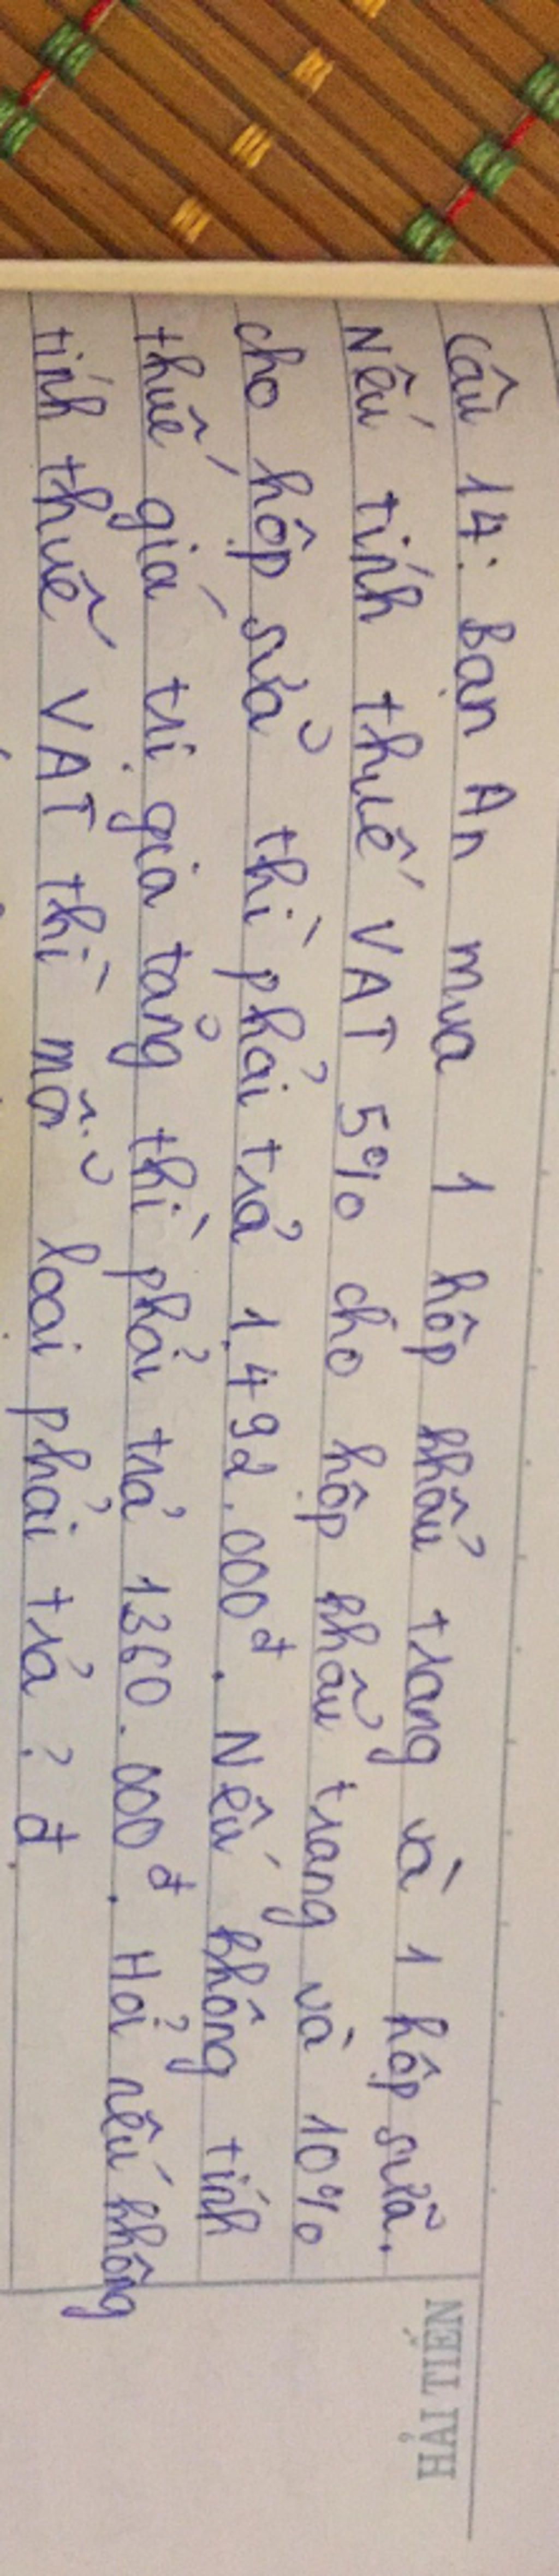 Câu 14: Bạn An mua 1 hộp khẩu trang và 1 hộp sữa.
Nếu tính thuế VAT 5% cho hộp khẩu trang và 10%
cho hộp sữa thì phải trả 1.492.000đ. Nếu không tính
thuế giá trị gia tăng thì phải trả 1360.000đ. Hỏi nếu không
tính thuế VAT thì mỗi loại phải trả ? đ
HẢI TIẾN